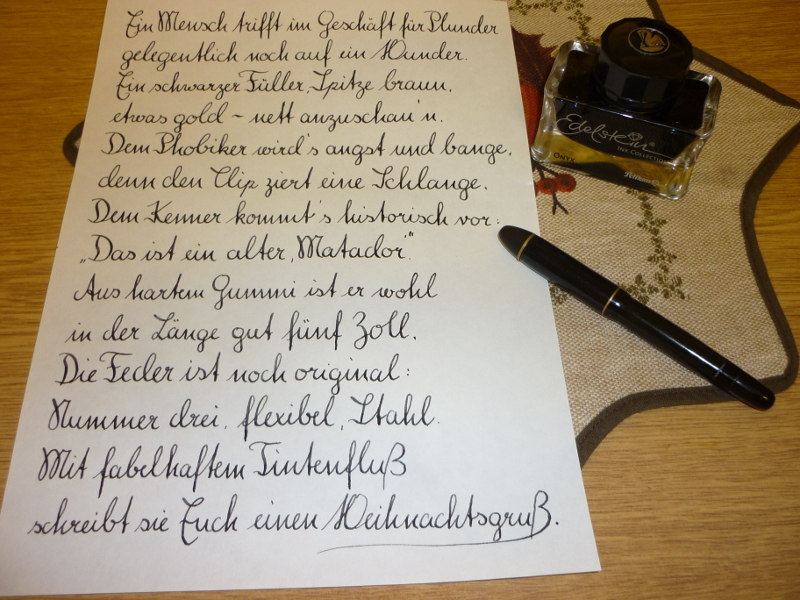 Ein Mensch trifft im Geschäft für Plunder
gelegentlich noch auf ein Wunder.
Ein schwarzer Füller, Spitze braun,
etwas gold - nett anzuschau'n.
Dem Phobiker wird's angst und bange,
denn den Clip ziert eine Schlange.
Dem Kenner kommt's historisch vor:
„Das ist ein alter ‚Matador'“.
Aus hartem Gummi ist er wohl
in der Länge gut fünf Zoll.
Die Feder ist noch original:
Nummer drei, flexibel, Stahl.
Mit fabelhaftem Tintenfluß
schreibt sie Euch einen Weihnachtsgruß.
Edelstein
INK COLLECTION
ONYX
Pelikan